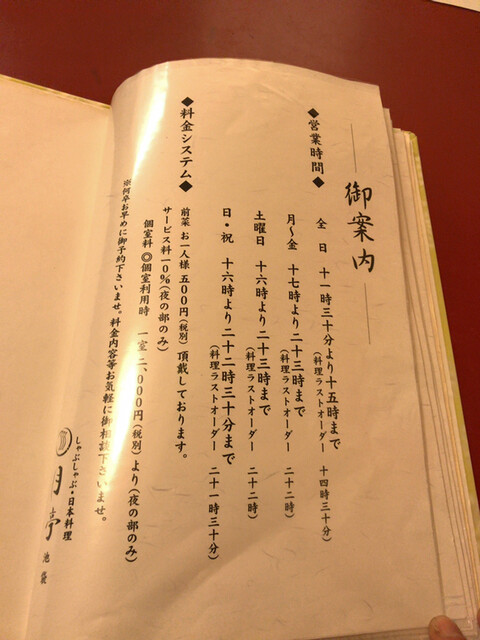 御案内
◆営業時間◆
全日 十一時三十分より十五時まで
(料理ラストオーダー 十四時三十分)
月〜金 十七時より二十三時まで
(料理ラストオーダー 二十二時)
土曜日 十六時より二十三時まで
(料理ラストオーダー 二十二時)
日・祝 十六時より二十二時三十分まで
(料理ラストオーダー 二十一時三十分)
◆料金システム◆
前菜 お一人様 五00円(税別) 頂戴しております。
サービス料一0%(夜の部のみ)
個室料 ◎個室利用時 一室 二、000円(税別)より(夜の部のみ)
※何卒お早めに御予約下さいませ。料金内容等お気軽に御相談下さいませ。
しゃぶしゃぶ・日本料理
月亭 池袋